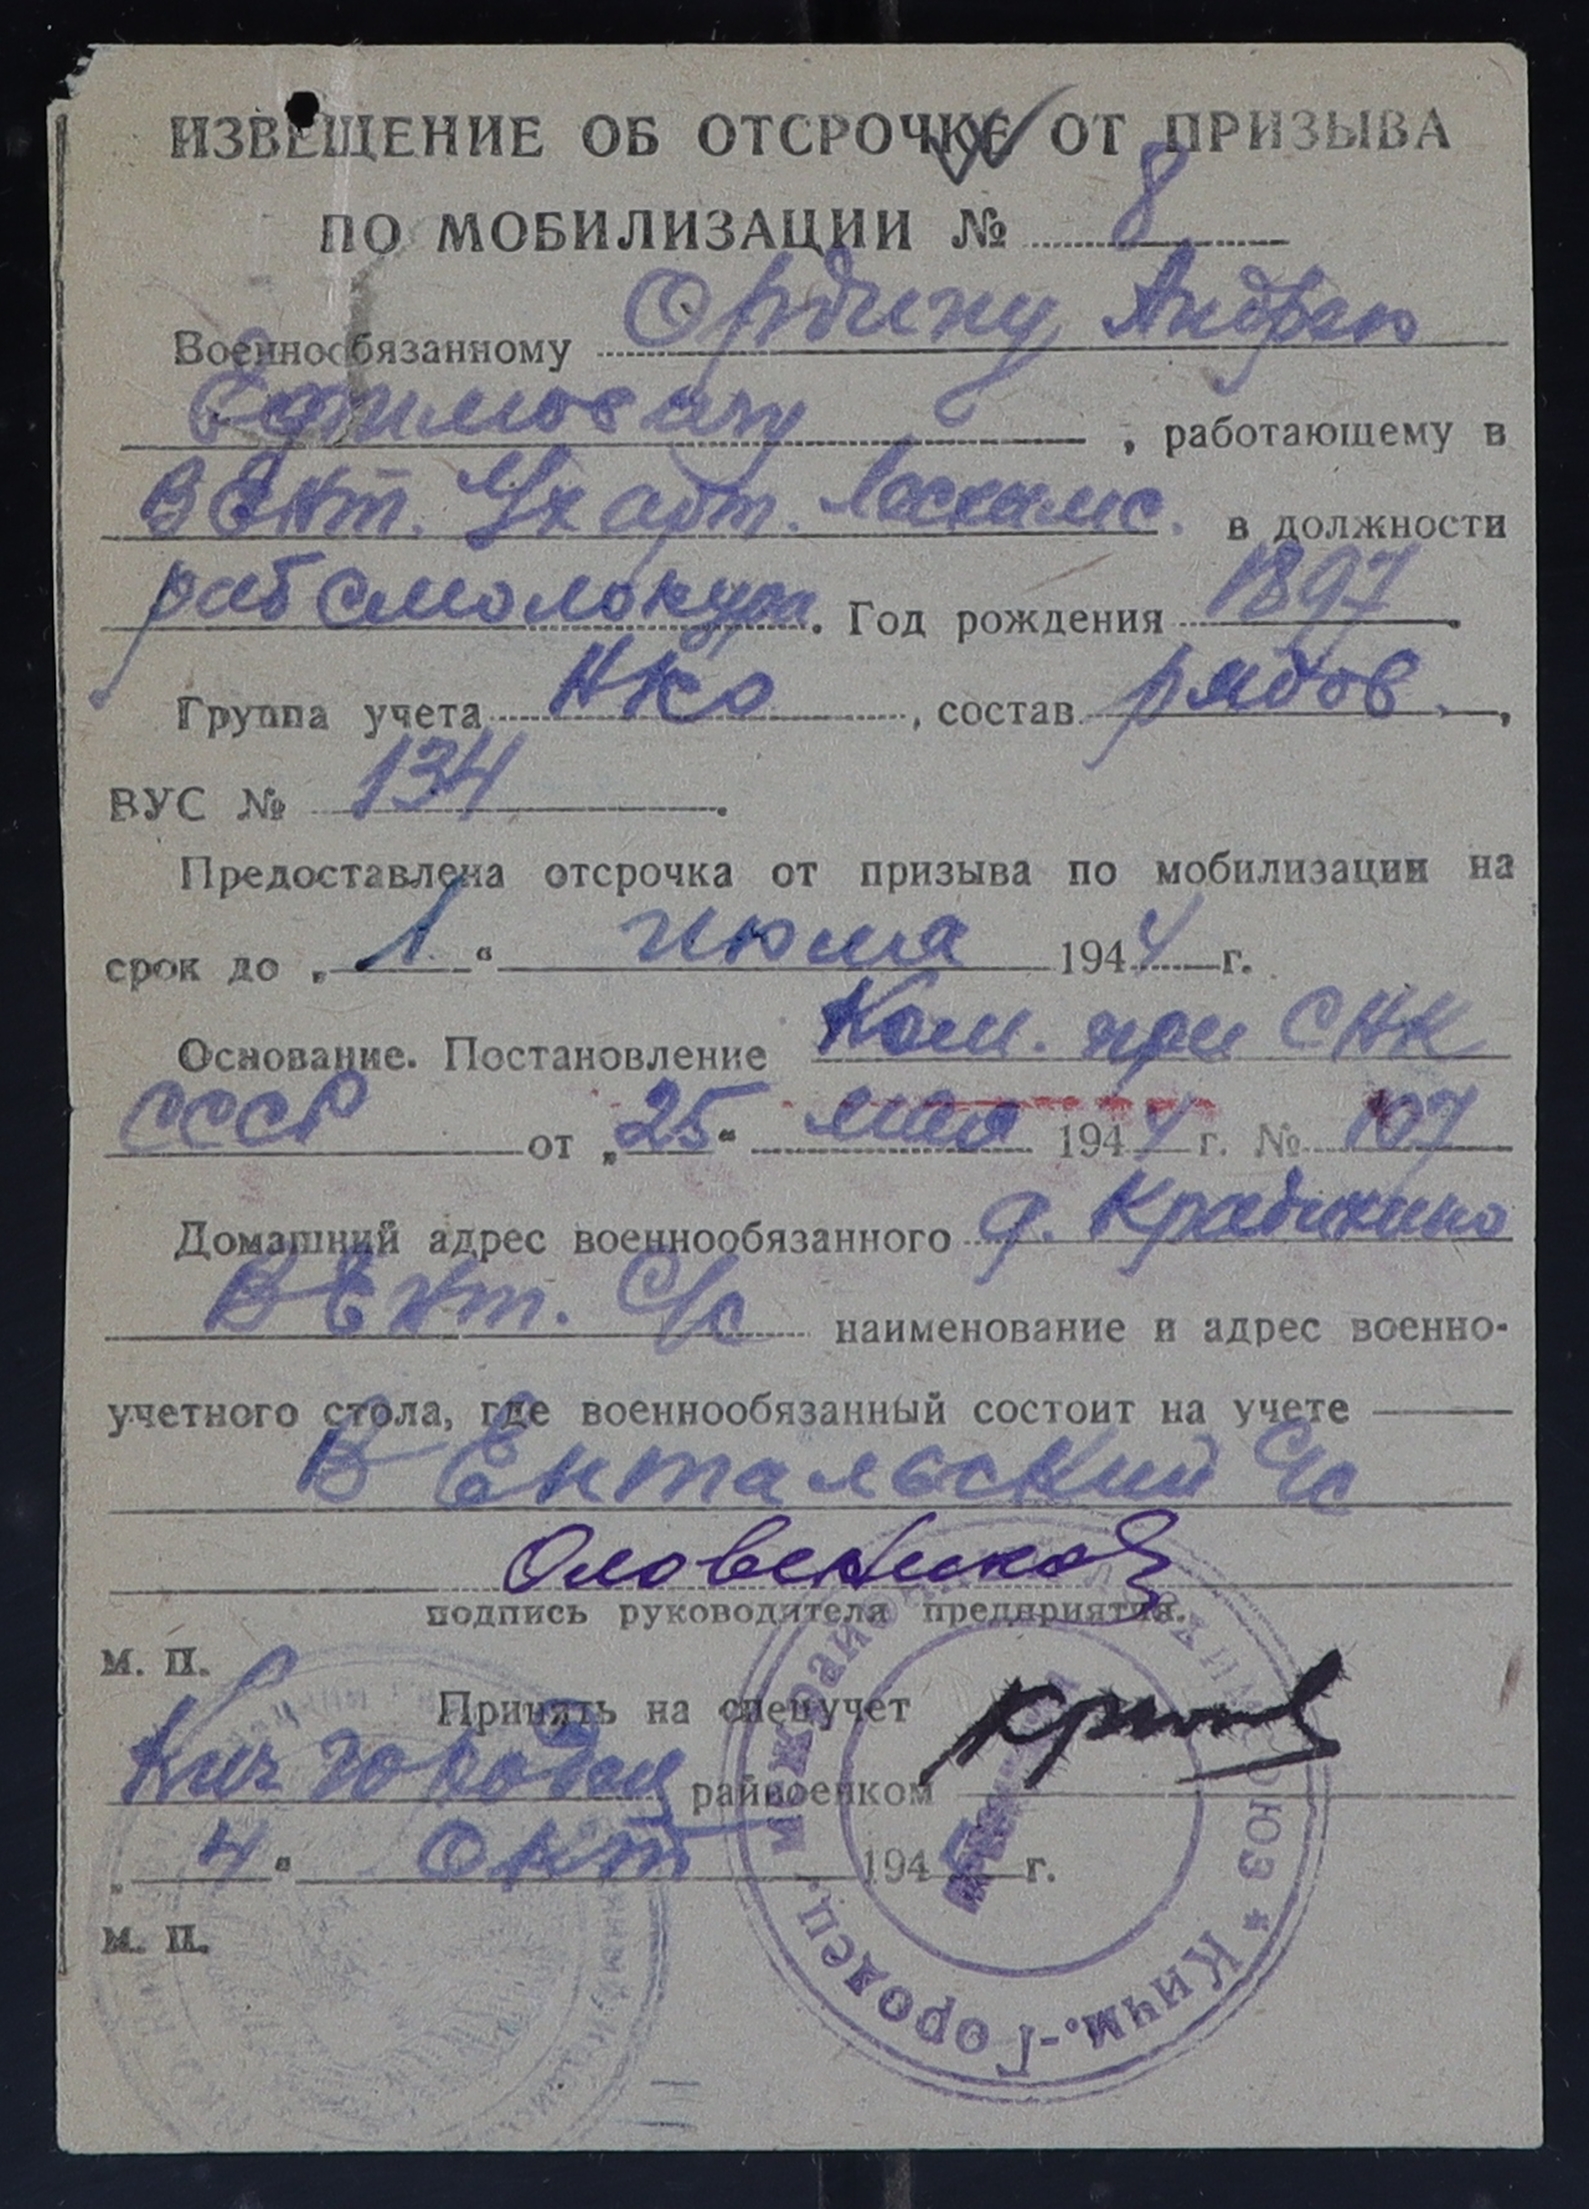 ИЗВЕЩЕНИЕ ОБ ОТСРОЧКЕ ОТ ПРИЗЫВА
ПО МОБИЛИЗАЦИИ № 8
Военнообязанному Ордину Андрею
Ефимовичу, работающему в
В Ент. Ух арт. в должности
раб смолокура. Год рождения 1897.
Группа учета НКО, состав рядов.,
ВУС № 134.
Предоставлена отсрочка от призыва по мобилизации на
срок до „1“ июля 1944 г.
Основание. Постановление Ком. при СНК
СССР от „25“ мая 1944 г. № 107
Домашний адрес военнообязанного д. Крадихино
В Ент. С/с наименование и адрес военно-
учетного стола, где военнообязанный состоит на учете
В Ентальский С/с
Оловеников
подпись руководителя предприятия.
М. П.
Принять на спецучет
Кич городец райвоенком
„4“ окт 194 г.
М. П.
Кичм.-Городец. межрайо ЮЗ *